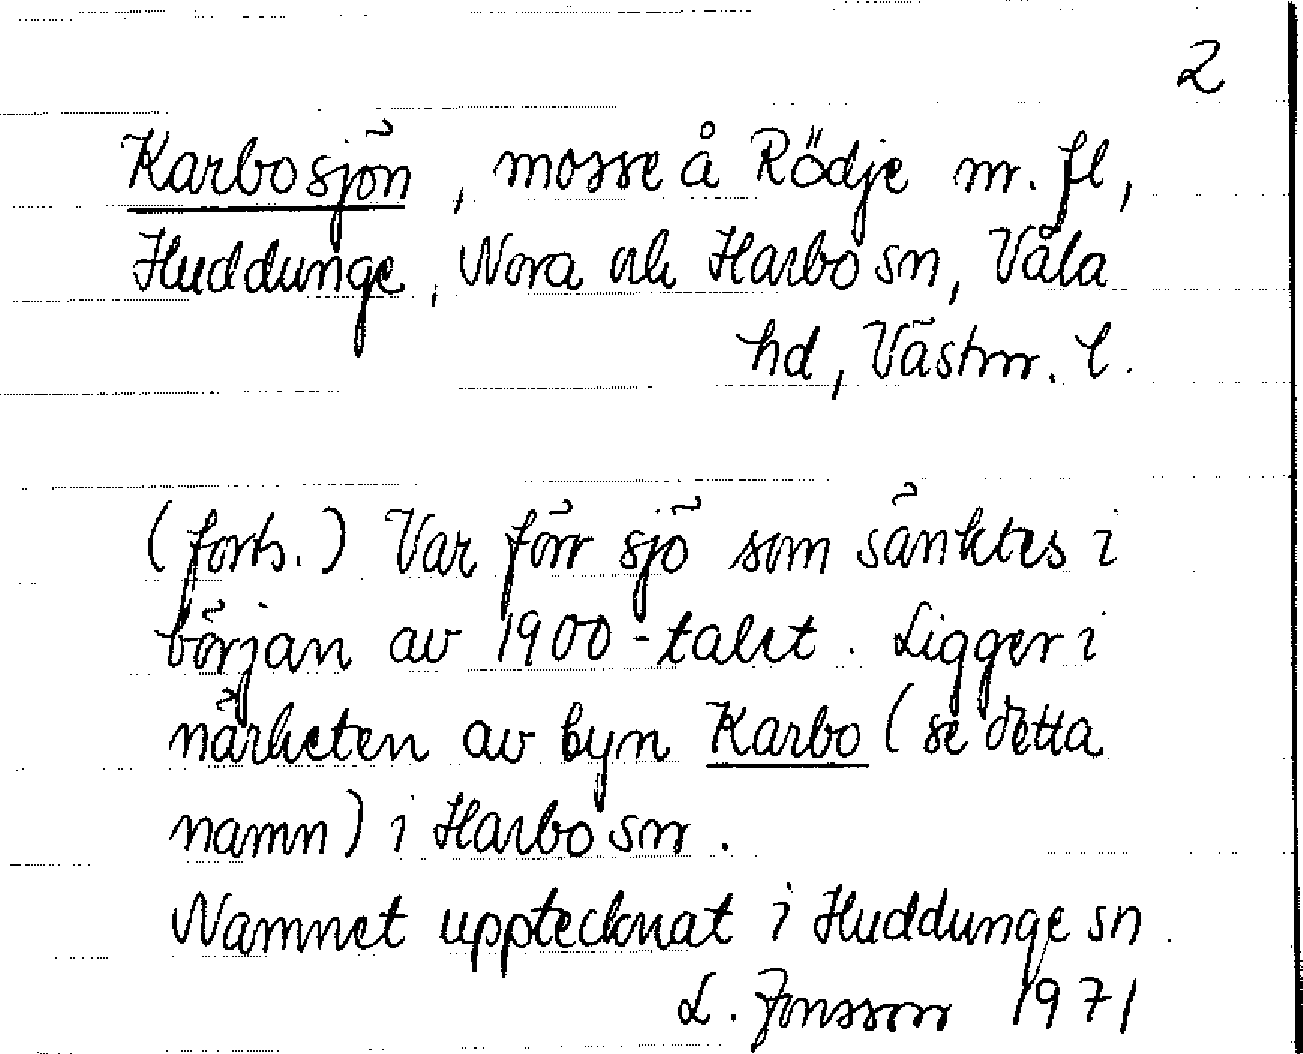 2
Karbosjön, mosse å Rödje m. fl,
Huddunge, Nora och Harbo sn, Våla
hd, Västm. l.
(forts.) Var förr sjö som sänktes i
början av 1900-talet. Ligger i
närheten av byn Karbo (se detta
namn) i Harbo sn.
Namnet upptecknat i Huddunge sn
L. Jonsson 1971